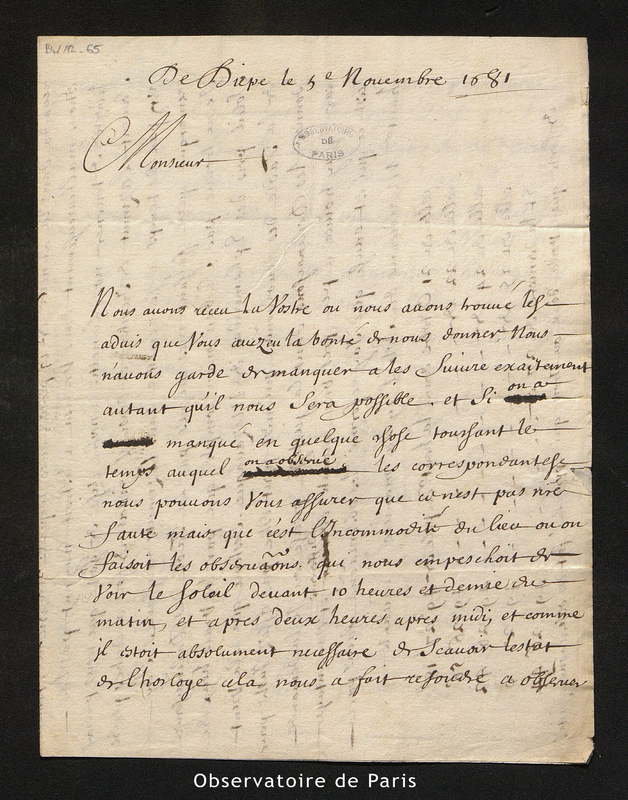 B4/12-65
De Diepe le 5e Novembre 1681
OBSERVATOIRE
DE
PARIS
Monsieur
Nous auons receu la Vostre ou nous auons trouué les
aduis que Vous auez eu la bonté de nous donner, Nous
n'auons garde de manquer a les Suiure exactement
autant qu'il nous Sera possible. et Si on a
manqué en quelque chose touchant le
temps auquel on a obserué les correspondantes
nous pouuons Vous assurer que ce n'est pas nre
faute mais que c'est l'Incommodité du lieu ou on
faisoit les obseruaons. qui nous empeschoit de
Voir le Soleil deuant 10 heures et demie du
matin, et apres deux heures apres midi, et comme
il estoit absolument necessaire de Scauoir lestat
de l'horloge cela nous a fait resoudre a obseruer
Observatoire de Paris